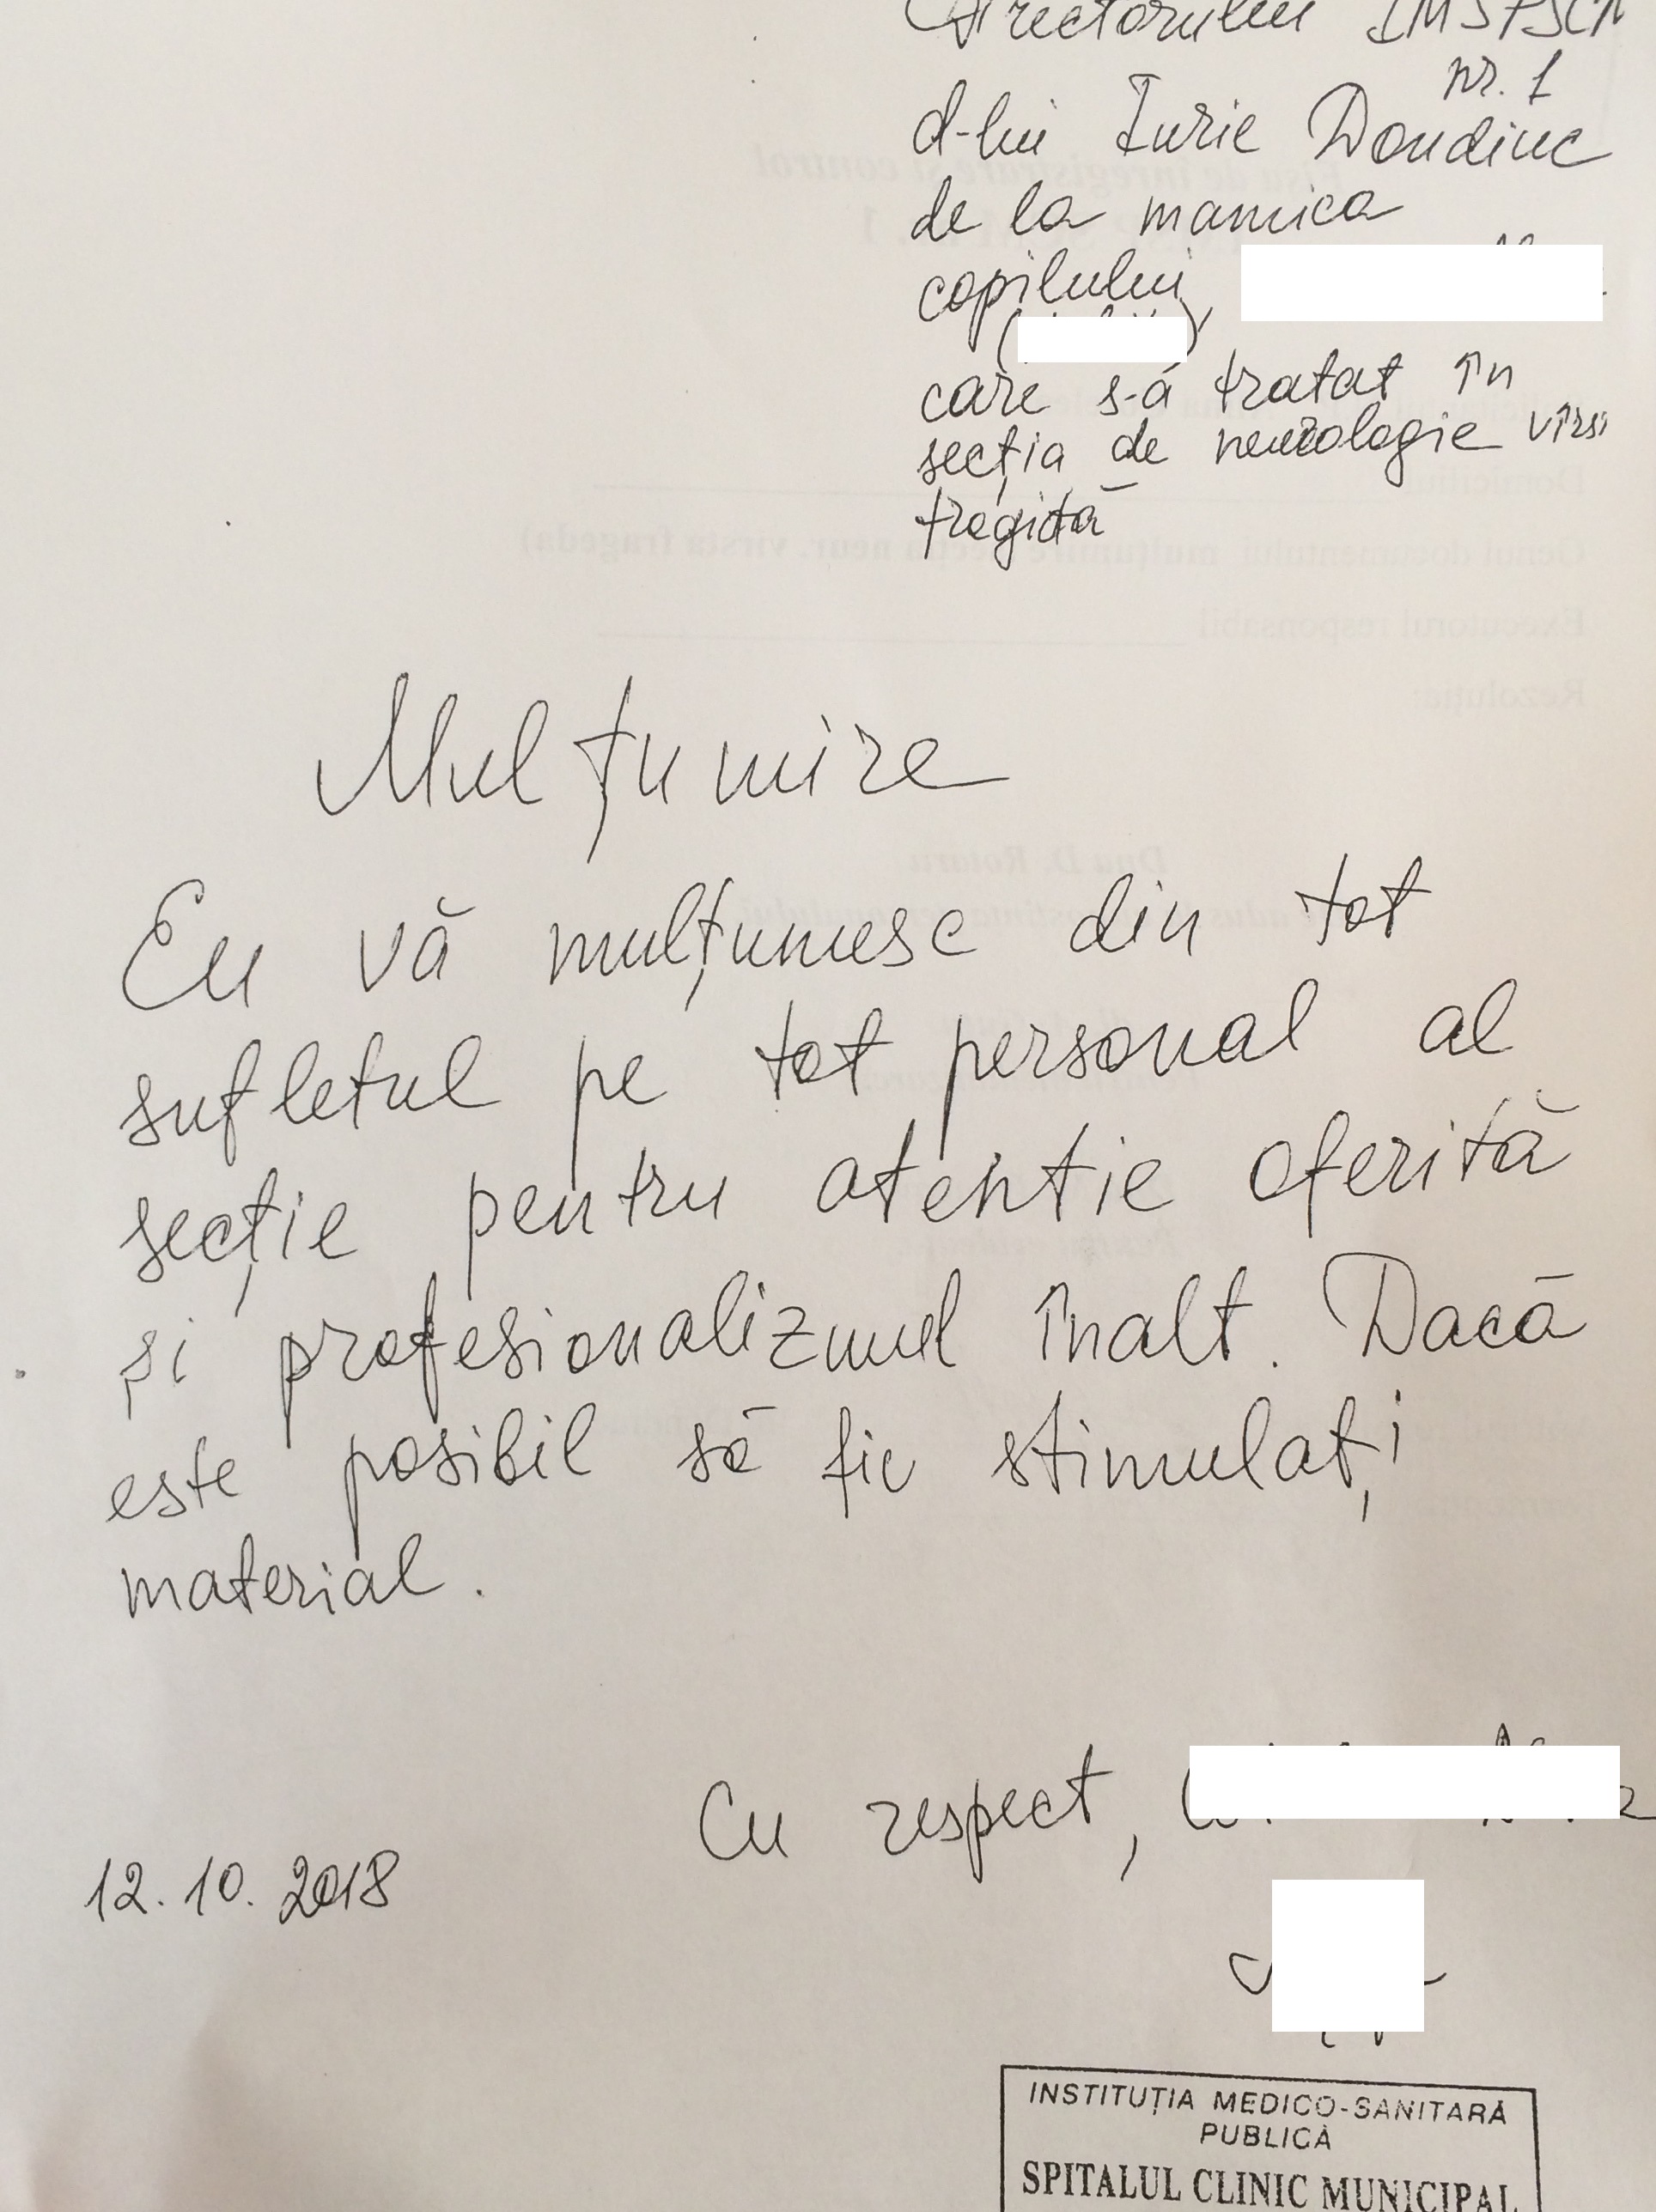 Directorului IMSPSCM
nr. 1
d-lui Iurie Dondiuc
de la mamica
copilului,
care s-a tratat în
secția de neurologie vîrsi
fragidă
Mulțumire
Eu vă mulțumesc din tot
sufletul pe tot personal al
secție pentru atentie oferită
și profesionalizmul înalt. Dacă
este posibil să fie stimulați
material.
Cu respect,
12.10.2018
INSTITUȚIA MEDICO-SANITARĂ
PUBLICĂ
SPITALUL CLINIC MUNICIPAL